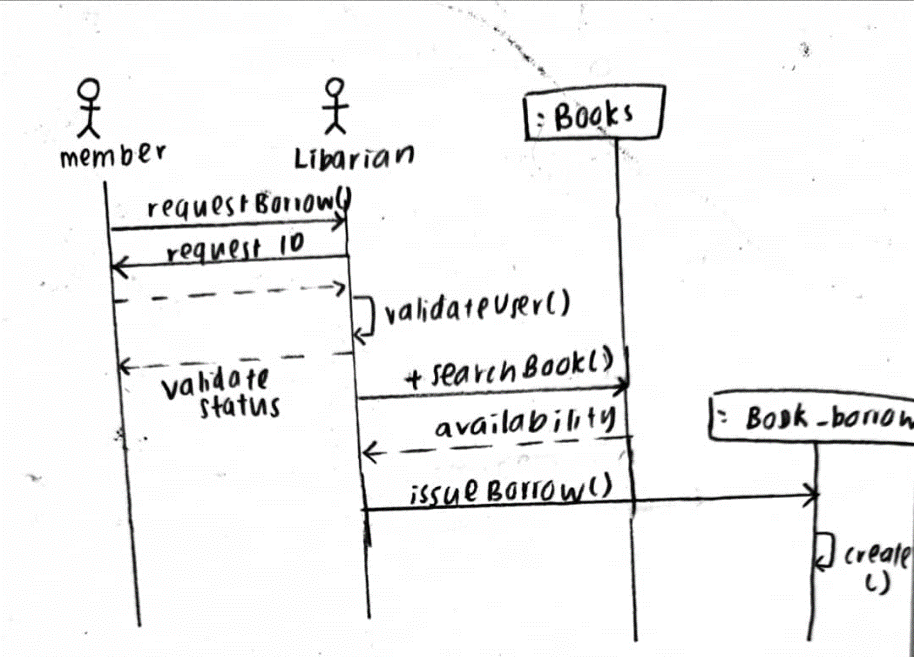 : Books
member
Libarian
requestBorrow()
request ID
validateUser()
validate
status
+ searchBook()
availability
: Book_borrow
issueBorrow()
create
()